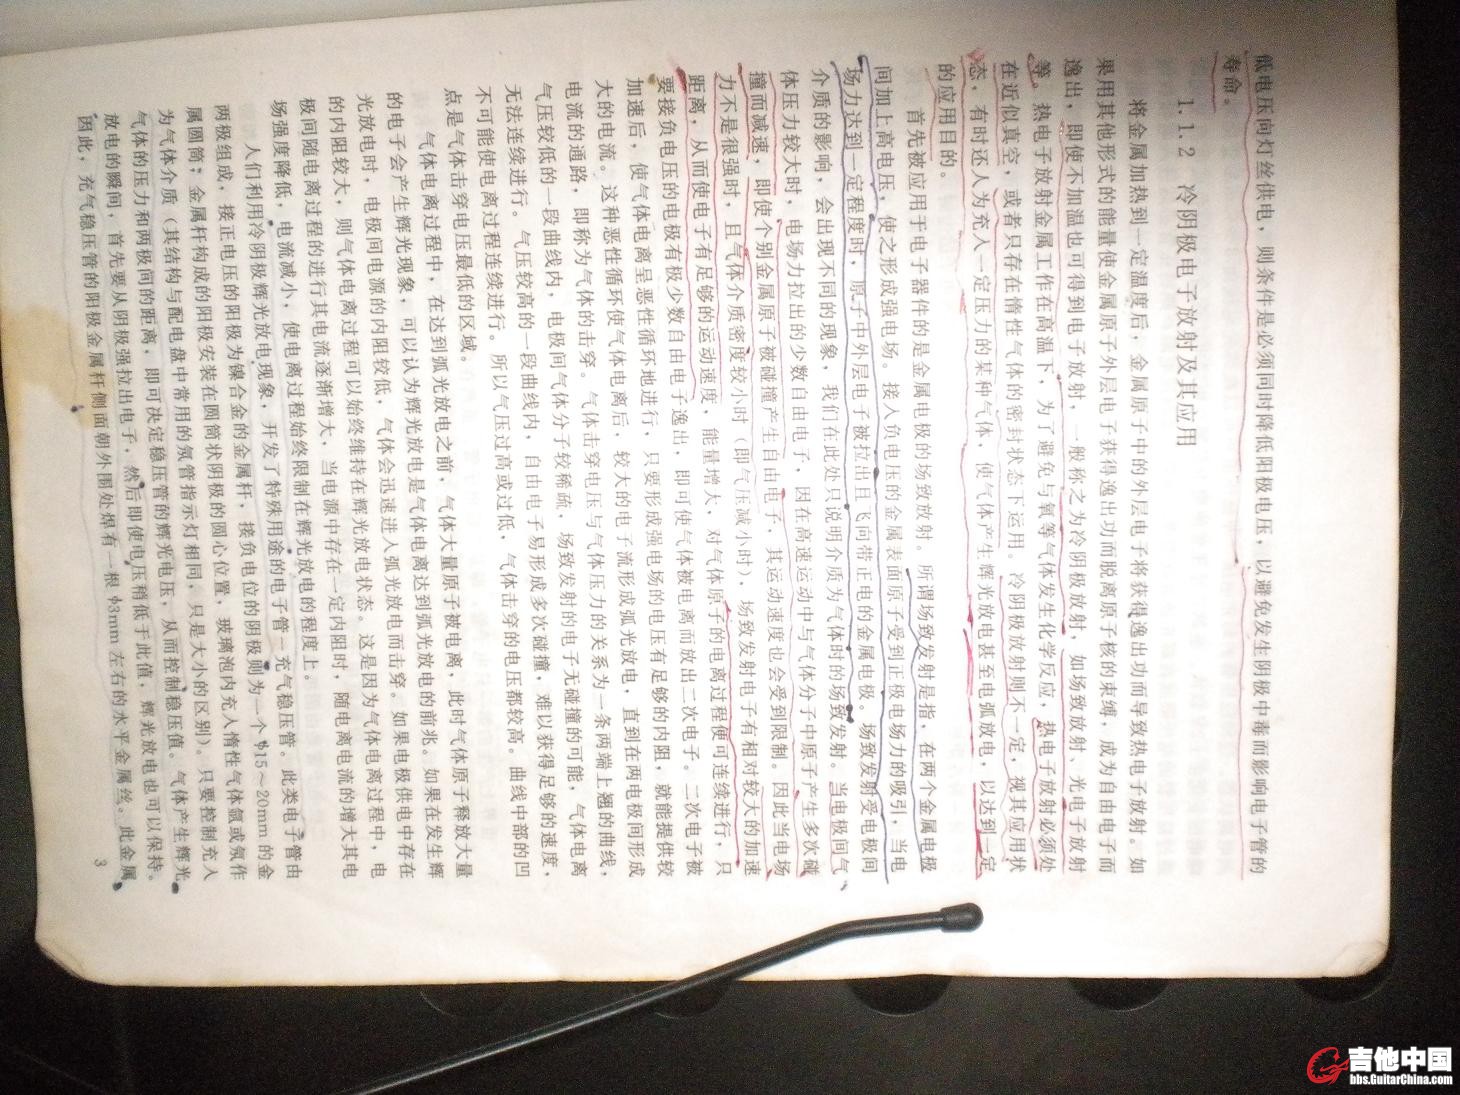 低电压向灯丝供电，则条件是必须同时降低阳极电压，以避免发生阴极中毒而影响电子管的
寿命。
1.1.2 冷阴极电子放射及其应用
将金属加热到一定温度后，金属原子中的外层电子将获得逸出功而导致热电子放射。如
果用其他形式的能量使金属原子外层电子获得逸出功而脱离原子核的束缚，成为自由电子而
逸出，即使不加温也可得到电子放射，一般称之为冷阴极放射，如场致放射、光电子放射
等。热电子放射金属工作在高温下，为了避免与氧等气体发生化学反应，热电子放射必须处
在近似真空，或者只存在惰性气体的密封状态下运用。冷阴极放射则不一定，视其应用状
态，有时还人为充入一定压力的某种气体，使气体产生辉光放电甚至电弧放电，以达到一定
的应用目的。
首先被应用于电子器件的是金属电极的场致放射。所谓场致发射是指，在两个金属电极
间加上高电压，使之形成强电场。接入负电压的金属表面原子受到正极电场力的吸引，当电
场力达到一定程度时，原子中外层电子被拉出且飞向带正电的金属电极。场致发射受电极间
介质的影响，会出现不同的现象，我们在此处只说明介质为气体时的场致发射。当电极间气
体压力较大时，电场力拉出的少数自由电子，因在高速运动中与气体分子中原子产生多次碰
撞而减速，即使个别金属原子被碰撞产生自由电子，其运动速度也会受到限制。因此当电场
力不是很强时，且气体介质密度较小时（即气压减小时），场致发射电子有相对较大的加速
距离，从而使电子有足够的运动速度，能量增大，对气体原子的电离过程便可连续进行，只
要接负电压的电极有极少数自由电子逸出，即可使气体被电离而放出二次电子。二次电子被
加速后，使气体电离呈恶性循环地进行，只要形成强电场的电压有足够的内阻，就能提供较
大的电流。这种恶性循环使气体电离后，较大的电子流形成弧光放电，直到在两电极间形成
电流的通路，即称为气体的击穿。气体击穿电压与气体压力的关系为一条两端上翘的曲线，
气压较低的一段曲线内，电极间气体分子较稀疏，场致发射的电子无碰撞的可能，气体电离
无法连续进行。气压较高的一段曲线内，自由电子易形成多次碰撞，难以获得足够的速度，
不可能使电离过程连续进行。所以气压过高或过低，气体击穿的电压都较高。曲线中部的凹
点是气体击穿电压最低的区域。
气体电离过程中，在达到弧光放电之前，气体大量原子被电离，此时气体原子释放大量
的电子会产生辉光现象，可以认为辉光放电是气体电离达到弧光放电的前兆。如果在发生辉
光放电时，电极间电源的内阻较低，气体会迅速进入弧光放电而击穿。如果电极供电中存在
的内阻较大，则气体电离过程可以始终维持在辉光放电状态。这是因为气体电离过程中，电
极间随电离过程的进行其电流逐渐增大，当电源中存在一定内阻时，随电离电流的增大其电
场强度降低，电流减小，使电离过程始终限制在辉光放电的程度上。
人们利用冷阴极辉光放电现象，开发了特殊用途的电子管－充气稳压管。此类电子管由
两极组成，接正电压的阳极为镍合金的金属杆，接负电位的阴极则为一个φ15～20mm 的金
属圆筒，金属杆构成的阳极安装在圆筒状阴极的圆心位置，玻璃泡内充入惰性气体氩或氖作
为气体介质（其结构与配电盘中常用的氖管指示灯相同，只是大小的区别）。只要控制充入
气体的压力和两极间的距离，即可决定稳压管的辉光电压，从而控制稳压值。气体产生辉光
放电的瞬间，首先要从阴极强拉出电子，然后即使电压稍低于此值，辉光放电也可以保持。
因此，充气稳压管的阳极金属杆侧面朝外围处焊有一根 φ3mm 左右的水平金属丝。此金属
3
吉他中国
bbs.GuitarChina.com